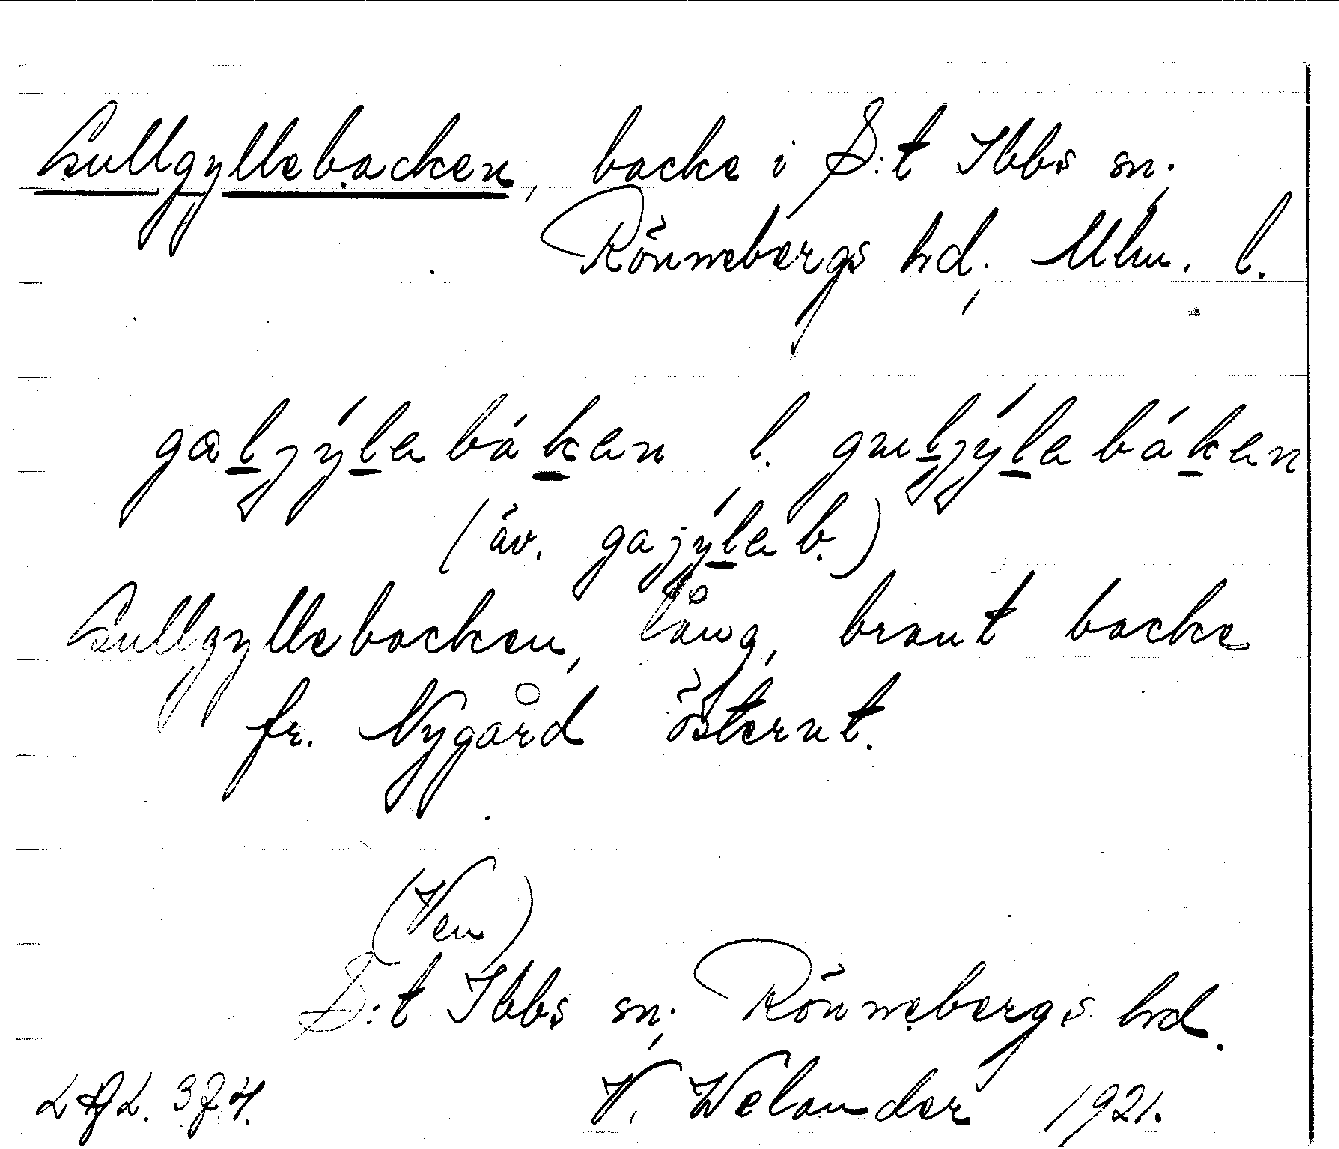 Gullgyllebacken, backe i S:t Ibbs sn,
Rönnebergs hd, Mlm. l.
gæljýlabákan l. guljýlabákan
(äv. gajýlab.)
Gullgyllebacken, lång, brant backe
fr. Nygård österut.
(Ven)
S:t Ibbs sn, Rönnebergs hd.
V. Welander 1921.